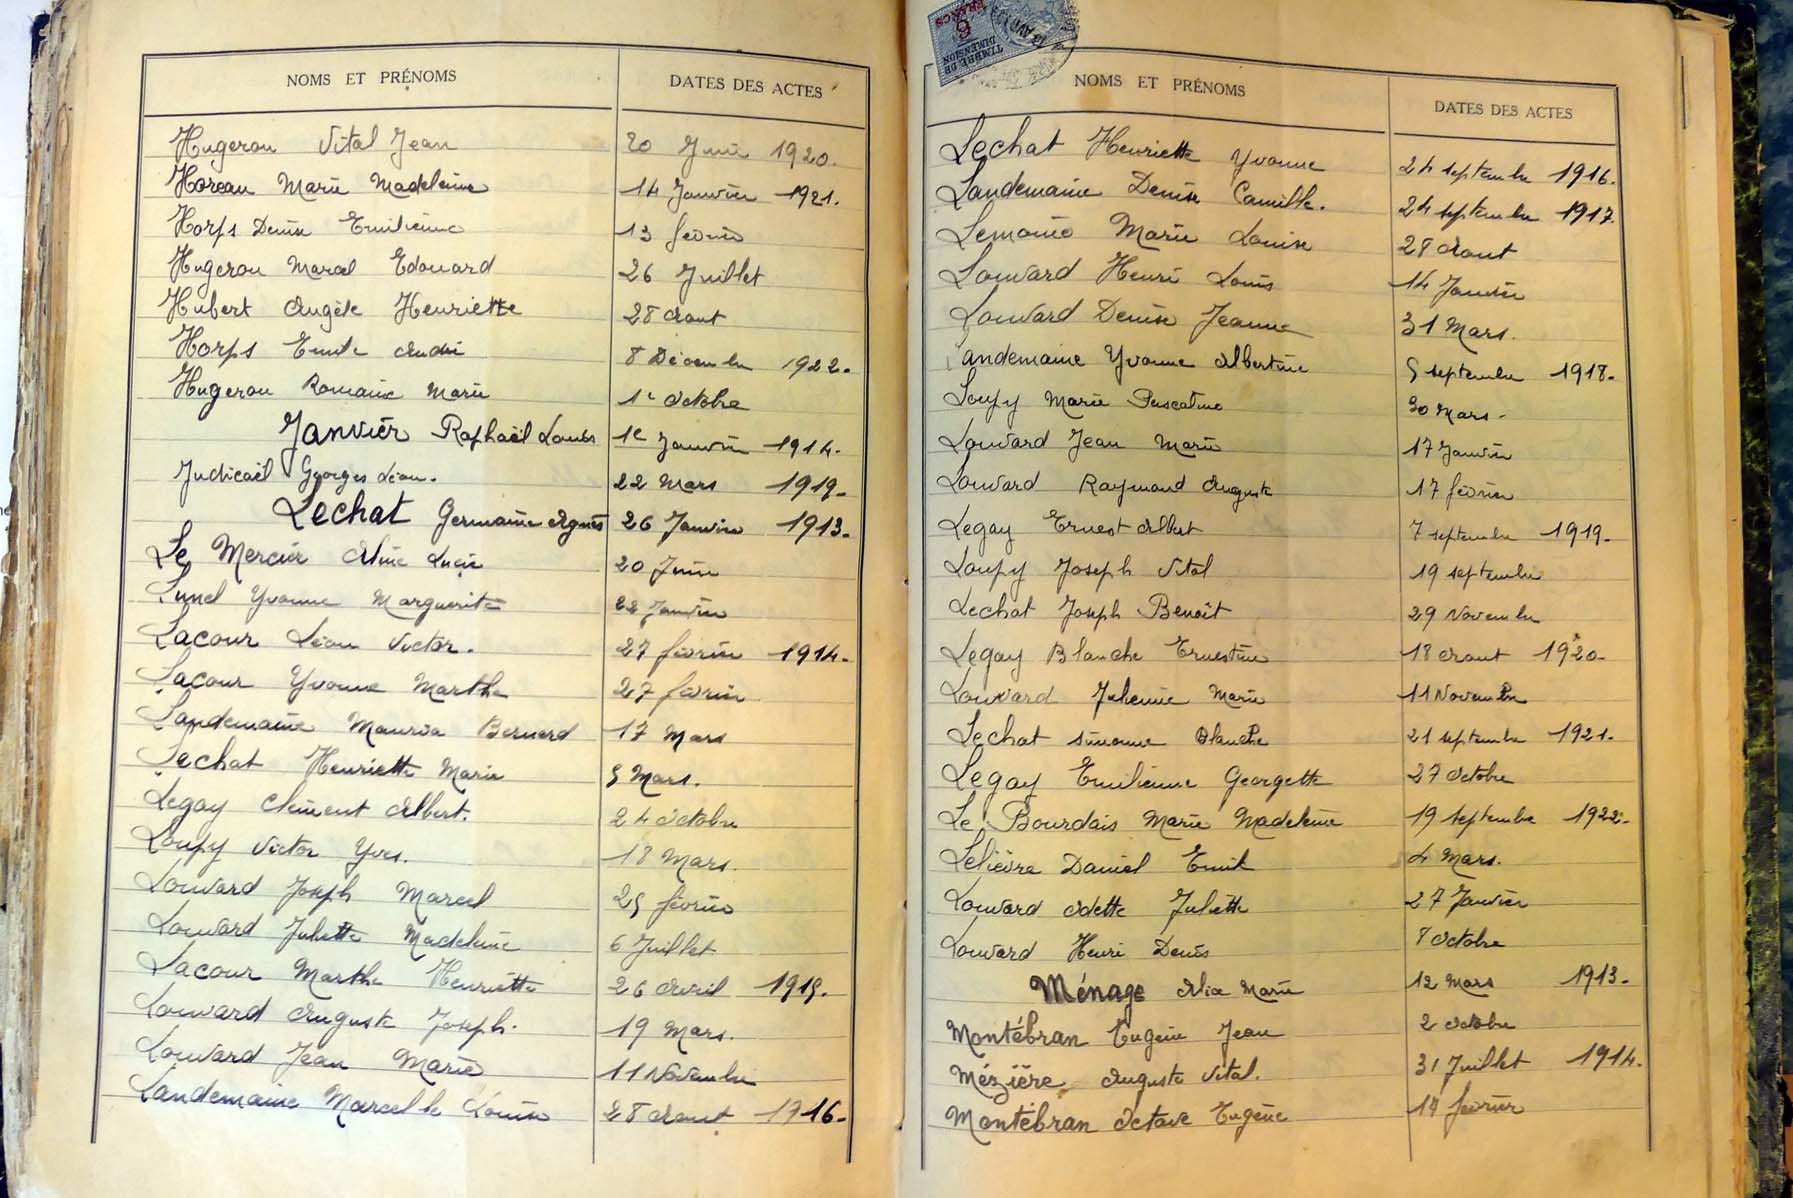 NOMS ET PRÉNOMS DATES DES ACTES
Hugerou Vital Jean 20 Juin 1920.
Horeau Marie Madeleine 14 Janvier 1921.
Horps Denise Emilienne 13 février
Hugerou Marcel Edouard 26 Juillet
Hubert Angèle Henriette 28 Aout
Horps Emile André 8 Décembre 1922.
Hugerou Romaine Marie 1e Octobre
Janvier Raphaël Louis 1e Janvier 1914.
Judicaël Georges Léon. 22 Mars 1919.
Lechat Germaine Agnès 26 Janvier 1913.
Le Mercier Aline Lucie 20 Juin
Lunel Yvonne Marguerite 22 Janvier
Lacour Léon Victor. 27 février 1914.
Lacour Yvonne Marthe 27 février
Landemaine Maurice Bernard 17 Mars
Lechat Henriette Marie 5 Mars.
Legay Clément Albert. 24 Octobre
Loupy Victor Yves. 18 Mars.
Louvard Joseph Marcel 25 février
Louvard Juliette Madeleine 6 Juillet
Lacour Marthe Henriette 26 Avril 1915.
Louvard Auguste Joseph. 19 Mars.
Louvard Jean Marie 11 Novembre
Landemaine Marcelle Louise 28 Aout 1916.
TIMBRE DE DIMENSION
6 FRANCS
NOMS ET PRÉNOMS DATES DES ACTES
Lechat Henriette Yvonne 24 septembre 1916.
Landemaine Denise Camille. 24 septembre 1917.
Lemoine Marie Louise 28 Aout
Louvard Henri Louis 14 Janvier
Louvard Denise Jeanne 31 Mars.
Landemaine Yvonne Albertine 5 septembre 1918.
Loupy Marie Pascaline 30 Mars.
Louvard Jean Marie 17 Janvier
Louvard Raymond Auguste 17 février
Legay Ernest Albert 7 septembre 1919.
Loupy Joseph Vital 19 septembre
Lechat Joseph Benoît 29 Novembre
Legay Blanche Ernestine 18 Aout 1920.
Louvard Julienne Marie 11 Novembre
Lechat Simonne Blanche 21 septembre 1921.
Legay Emilienne Georgette 27 Octobre
Le Bourdais Marie Madeleine 19 septembre 1922.
Lelièvre Daniel Emile 4 Mars.
Louvard Odette Juliette 27 Janvier
Louvard Henri Denis 8 Octobre
Ménage Alix Marie 12 Mars 1913.
Montébran Eugène Jean 2 Octobre
Mézière Auguste Vital. 31 Juillet 1914.
Montébran Octave Eugène 14 février